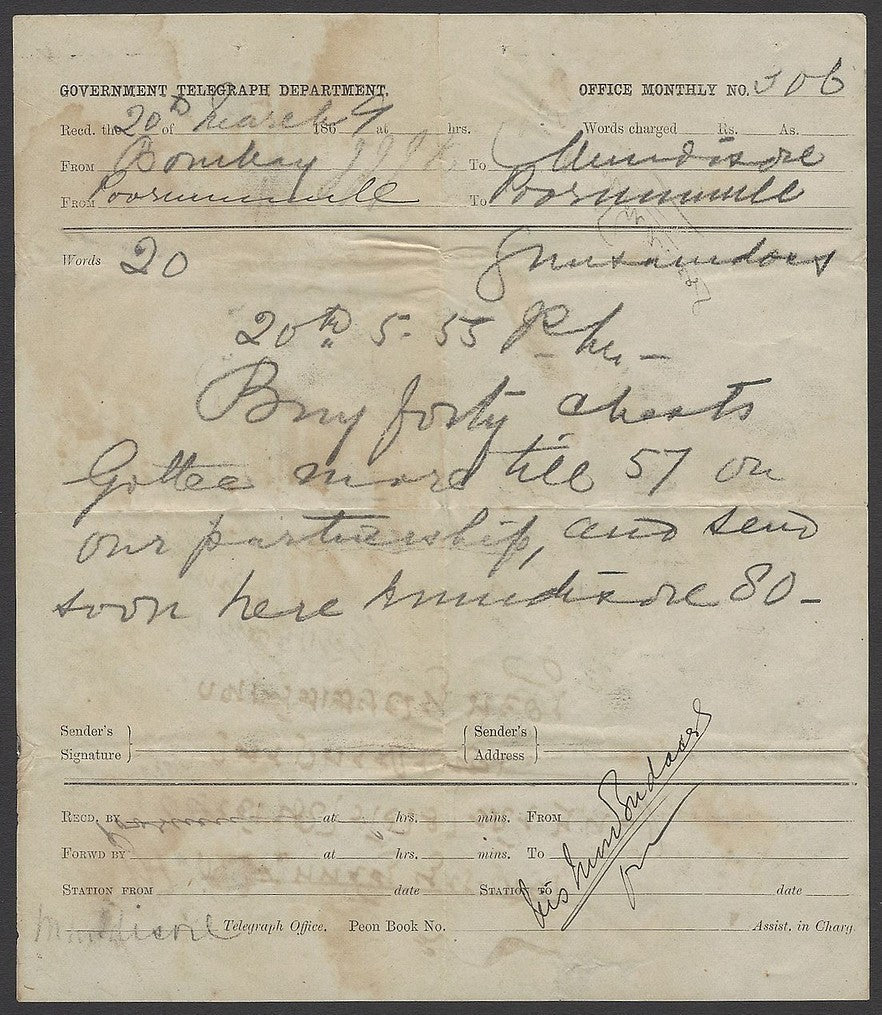 GOVERNMENT TELEGRAPH DEPARTMENT. OFFICE MONTHLY NO. 306
Recd. the 20th of March 1869 at hrs. Words charged Rs. As.
FROM Bombay To Mundisore
FROM Poorunmull To Poorunmull
Words 20 Gunsamdoss
20th 5-55 P.M.
Buy forty chests
Gottee more till 57 on
our partnership, and send
soon here Mundisore 80-
Sender's Signature } { Sender's Address }
RECD. BY at hrs. mins. FROM
FORWD BY at hrs. mins. To
STATION FROM date STATION TO date
Telegraph Office. Peon Book No. Assist. in Charg